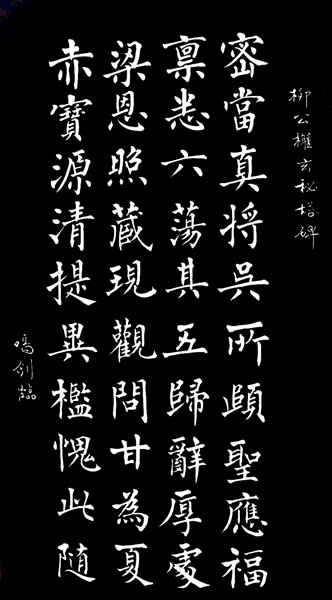 柳公權玄秘塔碑
密當真將吳所頤聖應福
稟悉六蕩其五歸辭厚處
梁恩照藏現觀問甘為夏
赤寶源清提異檻愧此隨
鳴劍臨